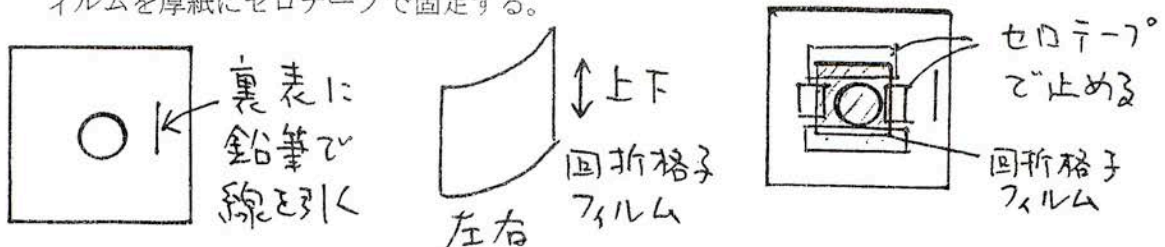 ィルムを厚紙にセロテープで固定する。
裏表に
鉛筆で
線を引く
上下
回折格子
フィルム
左右
セロテープ
で止める
回折格子
フィルム